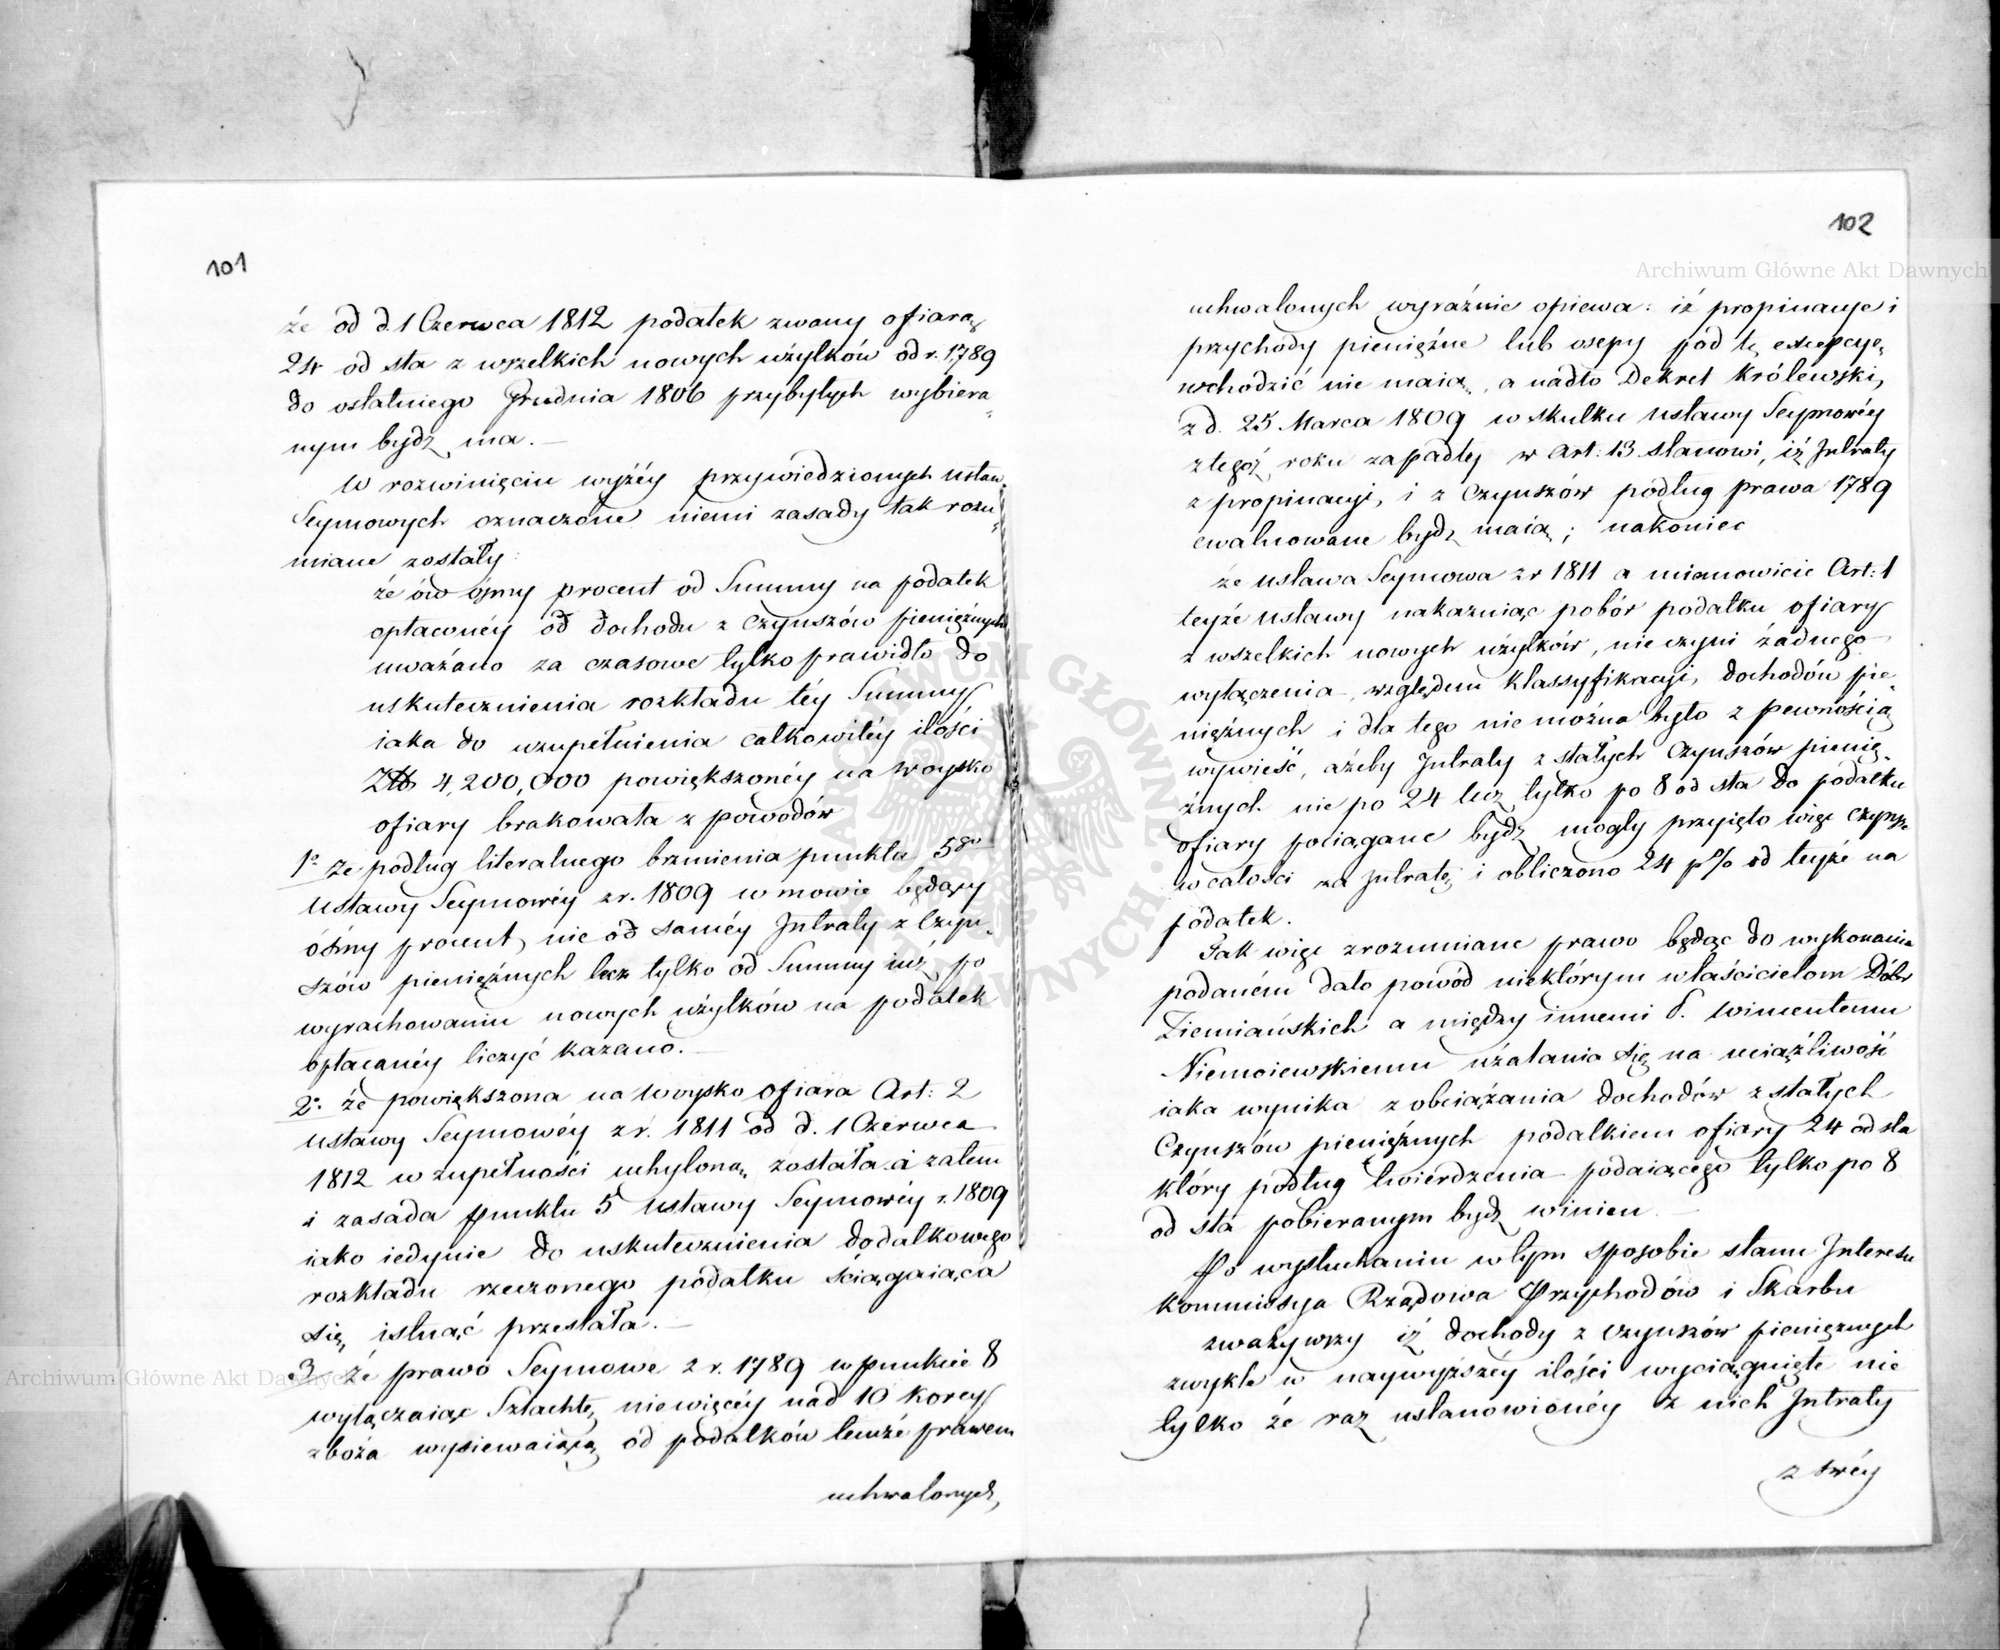 101
że od d. 1 Czerwca 1812 podatek zwany ofiarą
24 od sta z wszelkich nowych użytków od r. 1789
do ostatniego Grudnia 1806 przybyłych wybiera-
nym bydź ma. —
W rozwinięciu wyżéy przywiedzionych ustaw
Seymowych oznaczone niemi zasady tak rozu-
miane zostały:
że ów ósmy procent od Summy na podatek
opłaconéy od dochodu z Czynszów pieniężnych
uważano za czasowe tylko prawidło do
uskutecznienia rozkładu téy Summy
iaka do uzupełnienia całkowitéy ilości
Złł 4,200,000 powiększonéy na woysko
ofiary brakowała z powodów
1o Że podług literalnego brzmienia punktu 5go
Ustawy Seymowéy z r. 1809 w mowie będący
ósmy procent, nie od saméy Intraty z Czyn-
szów pieniężnych lecz tylko od Summy iuż po
wyrachowaniu nowych użytków na podatek
opłacanéy liczyć kazano. —
2o że powiększona na woysko ofiara Art: 2
Ustawy Seymowéy z r. 1811 od d. 1 Czerwca
1812 w zupełności uchyloną została a zatem
i zasada punktu 5 Ustawy Seymowéy r. 1809
iako iedynie do uskutecznienia dodatkowego
rozkładu rzeczonego podatku ściągaiąca
się, istnąć przestała. —
3 że prawo Seymowe z r. 1789 w punkcie 8
wyłączaiąc Szlachtę niewięcéy nad 10 korcy
zboża wysiewaiącą od podatków temże prawem
uchwalonych,
102
uchwalonych wyraźnie opiewa: iż propinacye i
przychody pieniężne lub osepy pod tę excepcyę
wchodzić nie maią, a nadto Dekret Królewski,
z d. 25 Marca 1809 w skutku Ustawy Seymowéy
z tegoż roku zapadły w Art: 13 stanowi, iż Intraty
z propinacyi, i z Czynszów podług prawa 1789
ewaluowane bydź maią; nakoniec
że Ustawa Seymowa z r 1811 a mianowicie Art: 1
teyże Ustawy nakazuiąc pobór podatku ofiary
z wszelkich nowych użytków, nie czyni żadnego
wyłączenia względem klassyfikacyi, dochodów pie-
niężnych i dla tego nie można było z pewnością
wywieść, ażeby Intraty z stałych Czynszów pienię-
żnych nie po 24 lecz tylko po 8 od sta do podatku
ofiary pociągane bydź mogły przyięto więc Czynsze
w całości za Intratę i obliczono 24 p% od teyże na
podatek.
Tak więc zrozumiane prawo będąc do wykonania
podaném dało powód niektórym właścicielom Dóbr
Ziemiańskich a między innemi P. Wincentemu
Niemoiewskiemu użalania się na uciążliwość
iaka wynika z obciążania dochodów z stałych
Czynszów pieniężnych podatkiem ofiary 24 od sta
który podług twierdzenia podaiącego tylko po 8
od sta pobieranym bydź winien —
Po wysłuchaniu w tym sposobie stanu Interesu
Kommissya Rządowa Przychodów i Skarbu
zważywszy iż dochody z Czynszów pieniężnych
zwykle w naywyższéy ilości wyciągnięte nie
tylko że raz ustanowionéy z nich Intraty
z swéy
Archiwum Główne Akt Dawnych
Archiwum Główne Akt Dawnych
ARCHIWUM GŁÓWNE AKT DAWNYCH